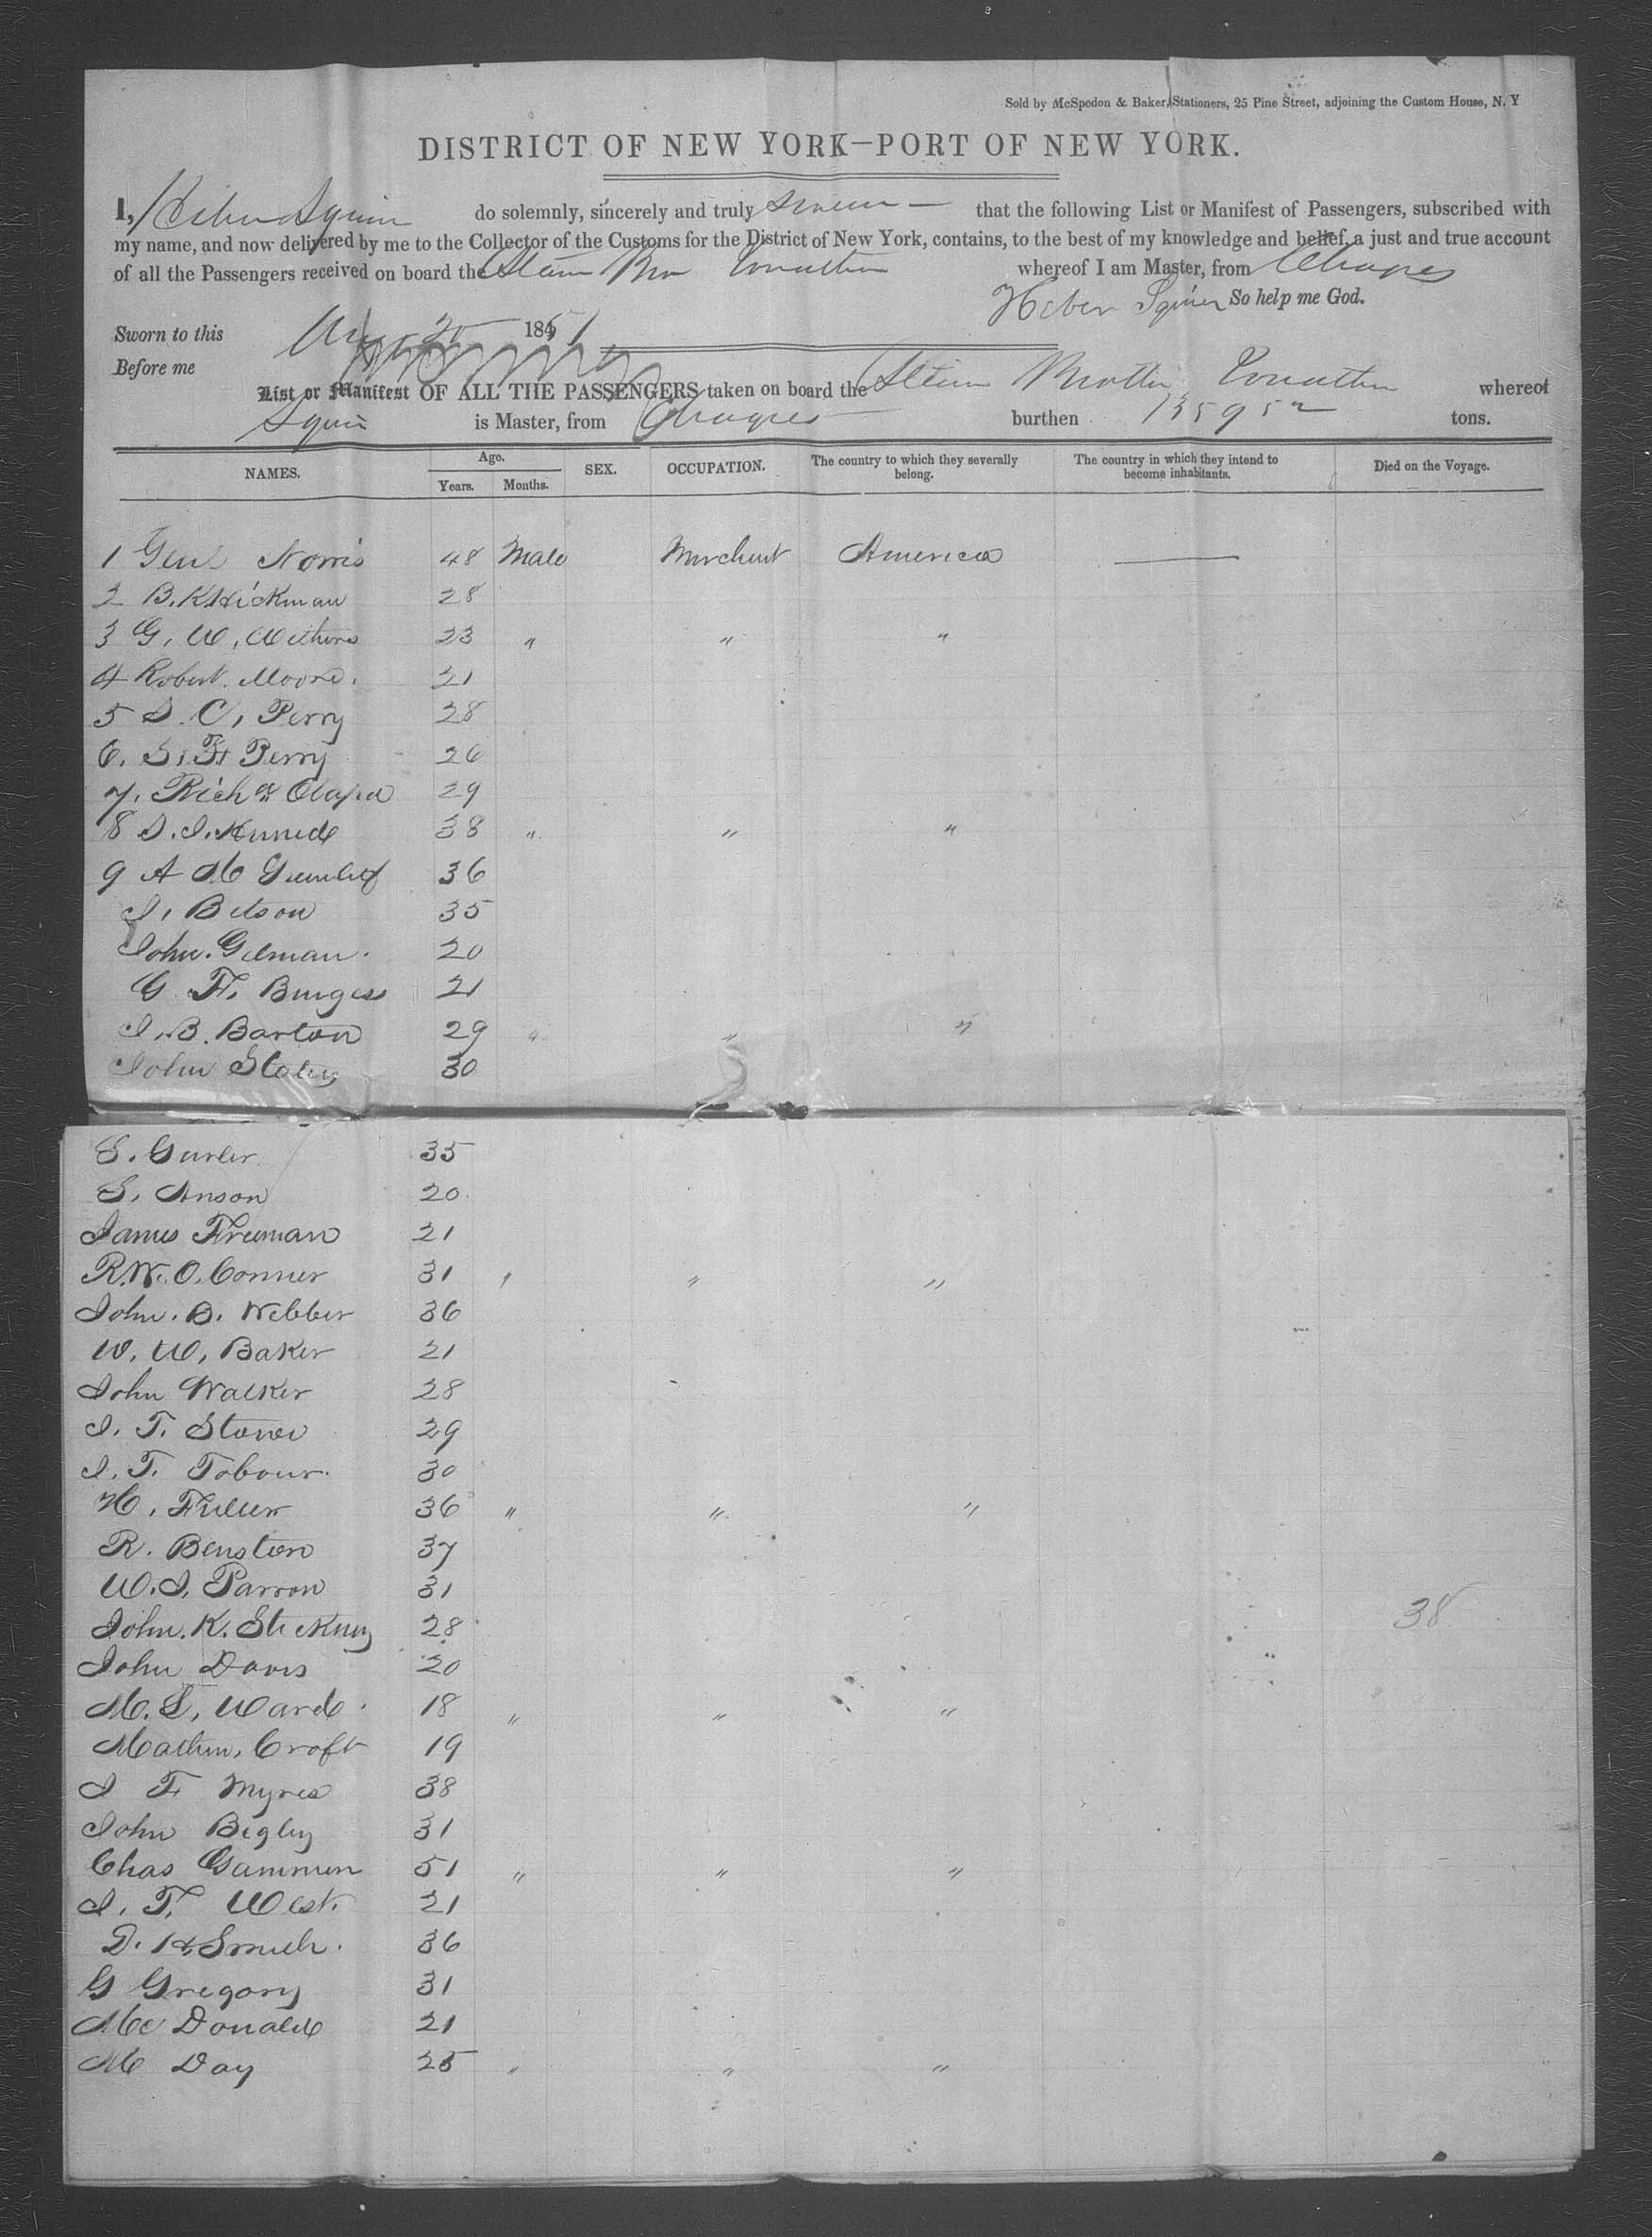 Sold by McSpedon & Baker, Stationers, 25 Pine Street, adjoining the Custom House, N. Y
DISTRICT OF NEW YORK—PORT OF NEW YORK.
I, Heber Squier do solemnly, sincerely and truly swear — that the following List or Manifest of Passengers, subscribed with
my name, and now delivered by me to the Collector of the Customs for the District of New York, contains, to the best of my knowledge and belief, a just and true account
of all the Passengers received on board the Steam Bro Jonathan whereof I am Master, from Chagres
Heber Squier So help me God.
Sworn to this Aug 25 1851
Before me
List or Manifest OF ALL THE PASSENGERS taken on board the Steam Brother Jonathan whereof
Squier is Master, from Chagres burthen 1359 52 tons.
NAMES. Age. Years. Months. SEX. OCCUPATION. The country to which they severally belong. The country in which they intend to become inhabitants. Died on the Voyage.
1 Genl Norris 48 Male Merchant America —
2 B. K Hickman 28
3 G. W. Withers 23 " " "
4 Robert Moore. 21
5 S. C. Perry 28
6. S. F. Perry 26
7. Richd 29
8 S. J. Kennede 38 " " "
9 A M Greenleaf 36
J. Betson 35
John. Gelman. 20
G F. Burgess 21
J. B. Barton 29 " " "
John Staley 30
S. Gurler 35
S. Anson 20
James Freeman 21
R. W. O. Conner 31 " " "
John. B. Webber 36
W. W. Baker 21
John Walker 28
J. T. Stower 29
J. T. Tobour. 30
H. Fuller 36 " " "
R. Benston 37
W. J. Parron 31
John. K. Stickney 28 38
John Davis 20
M. L. Ward 18 " " "
Mathew. Croft 19
J F Myres 38
John Begley 31
Chas Gammon 51 " " "
J. T. West. 21
D. H. Smith. 36
G Gregory 31
Mc Donald 21
M Day 25 " " "